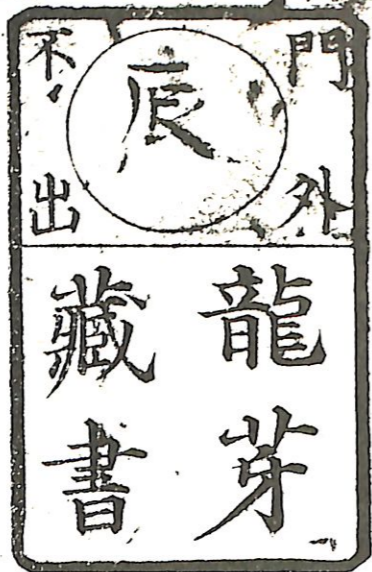 門外
不出
辰
龍芽
藏書